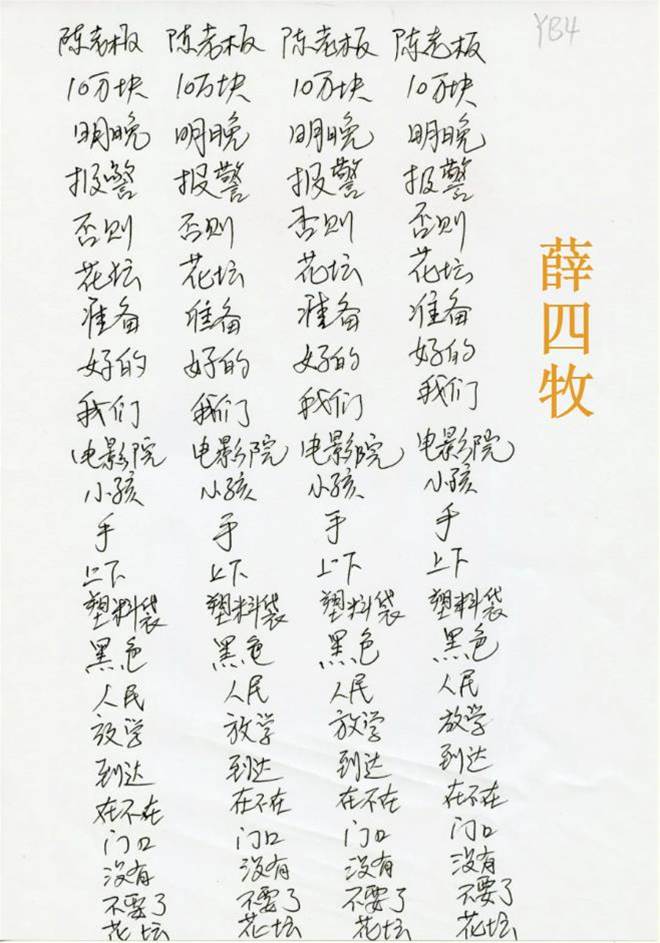 YB4
陈老板 陈老板 陈老板 陈老板
10万块 10万块 10万块 10万块
明晚 明晚 明晚 明晚
报警 报警 报警 报警
否则 否则 否则 否则
花坛 花坛 花坛 花坛
准备 准备 准备 准备
好的 好的 好的 好的
我们 我们 我们 我们
电影院 电影院 电影院 电影院
小孩 小孩 小孩 小孩
手 手 手 手
上下 上下 上下 上下
塑料袋 塑料袋 塑料袋 塑料袋
黑色 黑色 黑色 黑色
人民 人民 人民 人民
放学 放学 放学 放学
到达 到达 到达 到达
在不在 在不在 在不在 在不在
门口 门口 门口 门口
没有 没有 没有 没有
不要了 不要了 不要了 不要了
花坛 花坛 花坛 花坛
薛四牧